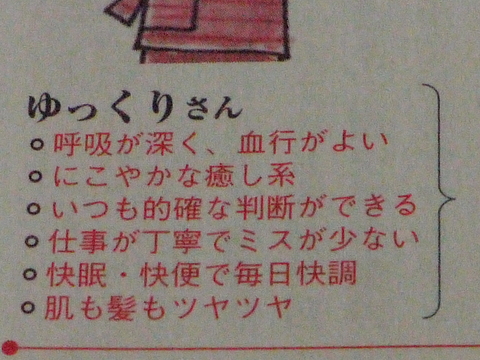 ゆっくりさん
○呼吸が深く、血行がよい
○にこやかな癒し系
○いつも的確な判断ができる
○仕事が丁寧でミスが少ない
○快眠・快便で毎日快調
○肌も髪もツヤツヤ